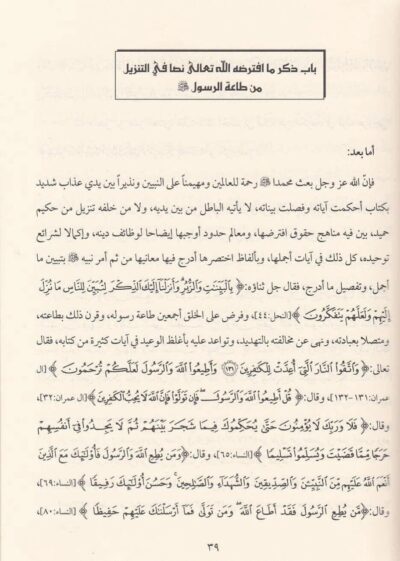 باب ذكر ما افترضه الله تعالى نصا في التنزيل
من طاعة الرسول ﷺ
أما بعد:
فإنّ الله عز وجل بعث محمدا ﷺ رحمة للعالمين ومهيمناً على النبيين ونذيراً بين يدي عذاب شديد
بكتاب أحكمت آياته وفصلت بيناته، لا يأتيه الباطل من بين يديه، ولا من خلفه تنزيل من حكيم
حميد، بين فيه مناهج حقوق افترضها، ومعالم حدود أوجبها إيضاحا لوظائف دينه، وإكمالا لشرائع
توحيده، كل ذلك في آيات أجملها، وبألفاظ اختصرها أدرج فيها معانيها من ثم أمر نبيه ﷺ بتبيين ما
أجمل، وتفصيل ما أدرج، فقال جل ثناؤه:﴿ بِالْبَيِّنَٰتِ وَالزُّبُرِ وَأَنزَلْنَا إِلَيْكَ الذِّكْرَ لِتُبَيِّنَ لِلنَّاسِ مَا نُزِّلَ
إِلَيْهِمْ وَلَعَلَّهُمْ يَتَفَكَّرُونَ ﴾[النحل:٤٤]، وفرض على الخلق أجمعين طاعة رسوله، وقرن ذلك بطاعته،
ومتصلا بعبادته، ونهى عن مخالفته بالتهديد، وتواعد عليه بأغلظ الوعيد في آيات كثيرة من كتابه، فقال
تعالى:﴿ وَاتَّقُوا النَّارَ الَّتِي أُعِدَّتْ لِلْكَٰفِرِينَ ﴿١٣١﴾ وَأَطِيعُوا اللَّهَ وَالرَّسُولَ لَعَلَّكُمْ تُرْحَمُونَ ﴾[ال
عمران:١٣١-١٣٢]، وقال:﴿ قُلْ أَطِيعُوا اللَّهَ وَالرَّسُولَ فَإِن تَوَلَّوْا فَإِنَّ اللَّهَ لَا يُحِبُّ الْكَٰفِرِينَ ﴾[ال عمران:٣٢]،
وقال:﴿ فَلَا وَرَبِّكَ لَا يُؤْمِنُونَ حَتَّىٰ يُحَكِّمُوكَ فِيمَا شَجَرَ بَيْنَهُمْ ثُمَّ لَا يَجِدُوا فِي أَنفُسِهِمْ
حَرَجًا مِّمَّا قَضَيْتَ وَيُسَلِّمُوا تَسْلِيمًا ﴾[النساء:٦٥]، وقال:﴿وَمَن يُطِعِ اللَّهَ وَالرَّسُولَ فَأُولَٰئِكَ مَعَ الَّذِينَ
أَنْعَمَ اللَّهُ عَلَيْهِم مِّنَ النَّبِيِّينَ وَالصِّدِّيقِينَ وَالشُّهَدَاءِ وَالصَّالِحِينَ وَحَسُنَ أُولَٰئِكَ رَفِيقًا ﴾[النساء:٦٩]،
وقال:﴿مَّن يُطِعِ الرَّسُولَ فَقَدْ أَطَاعَ اللَّهَ وَمَن تَوَلَّىٰ فَمَا أَرْسَلْنَاكَ عَلَيْهِمْ حَفِيظًا ﴾[النساء:٨٠]،
٣٩